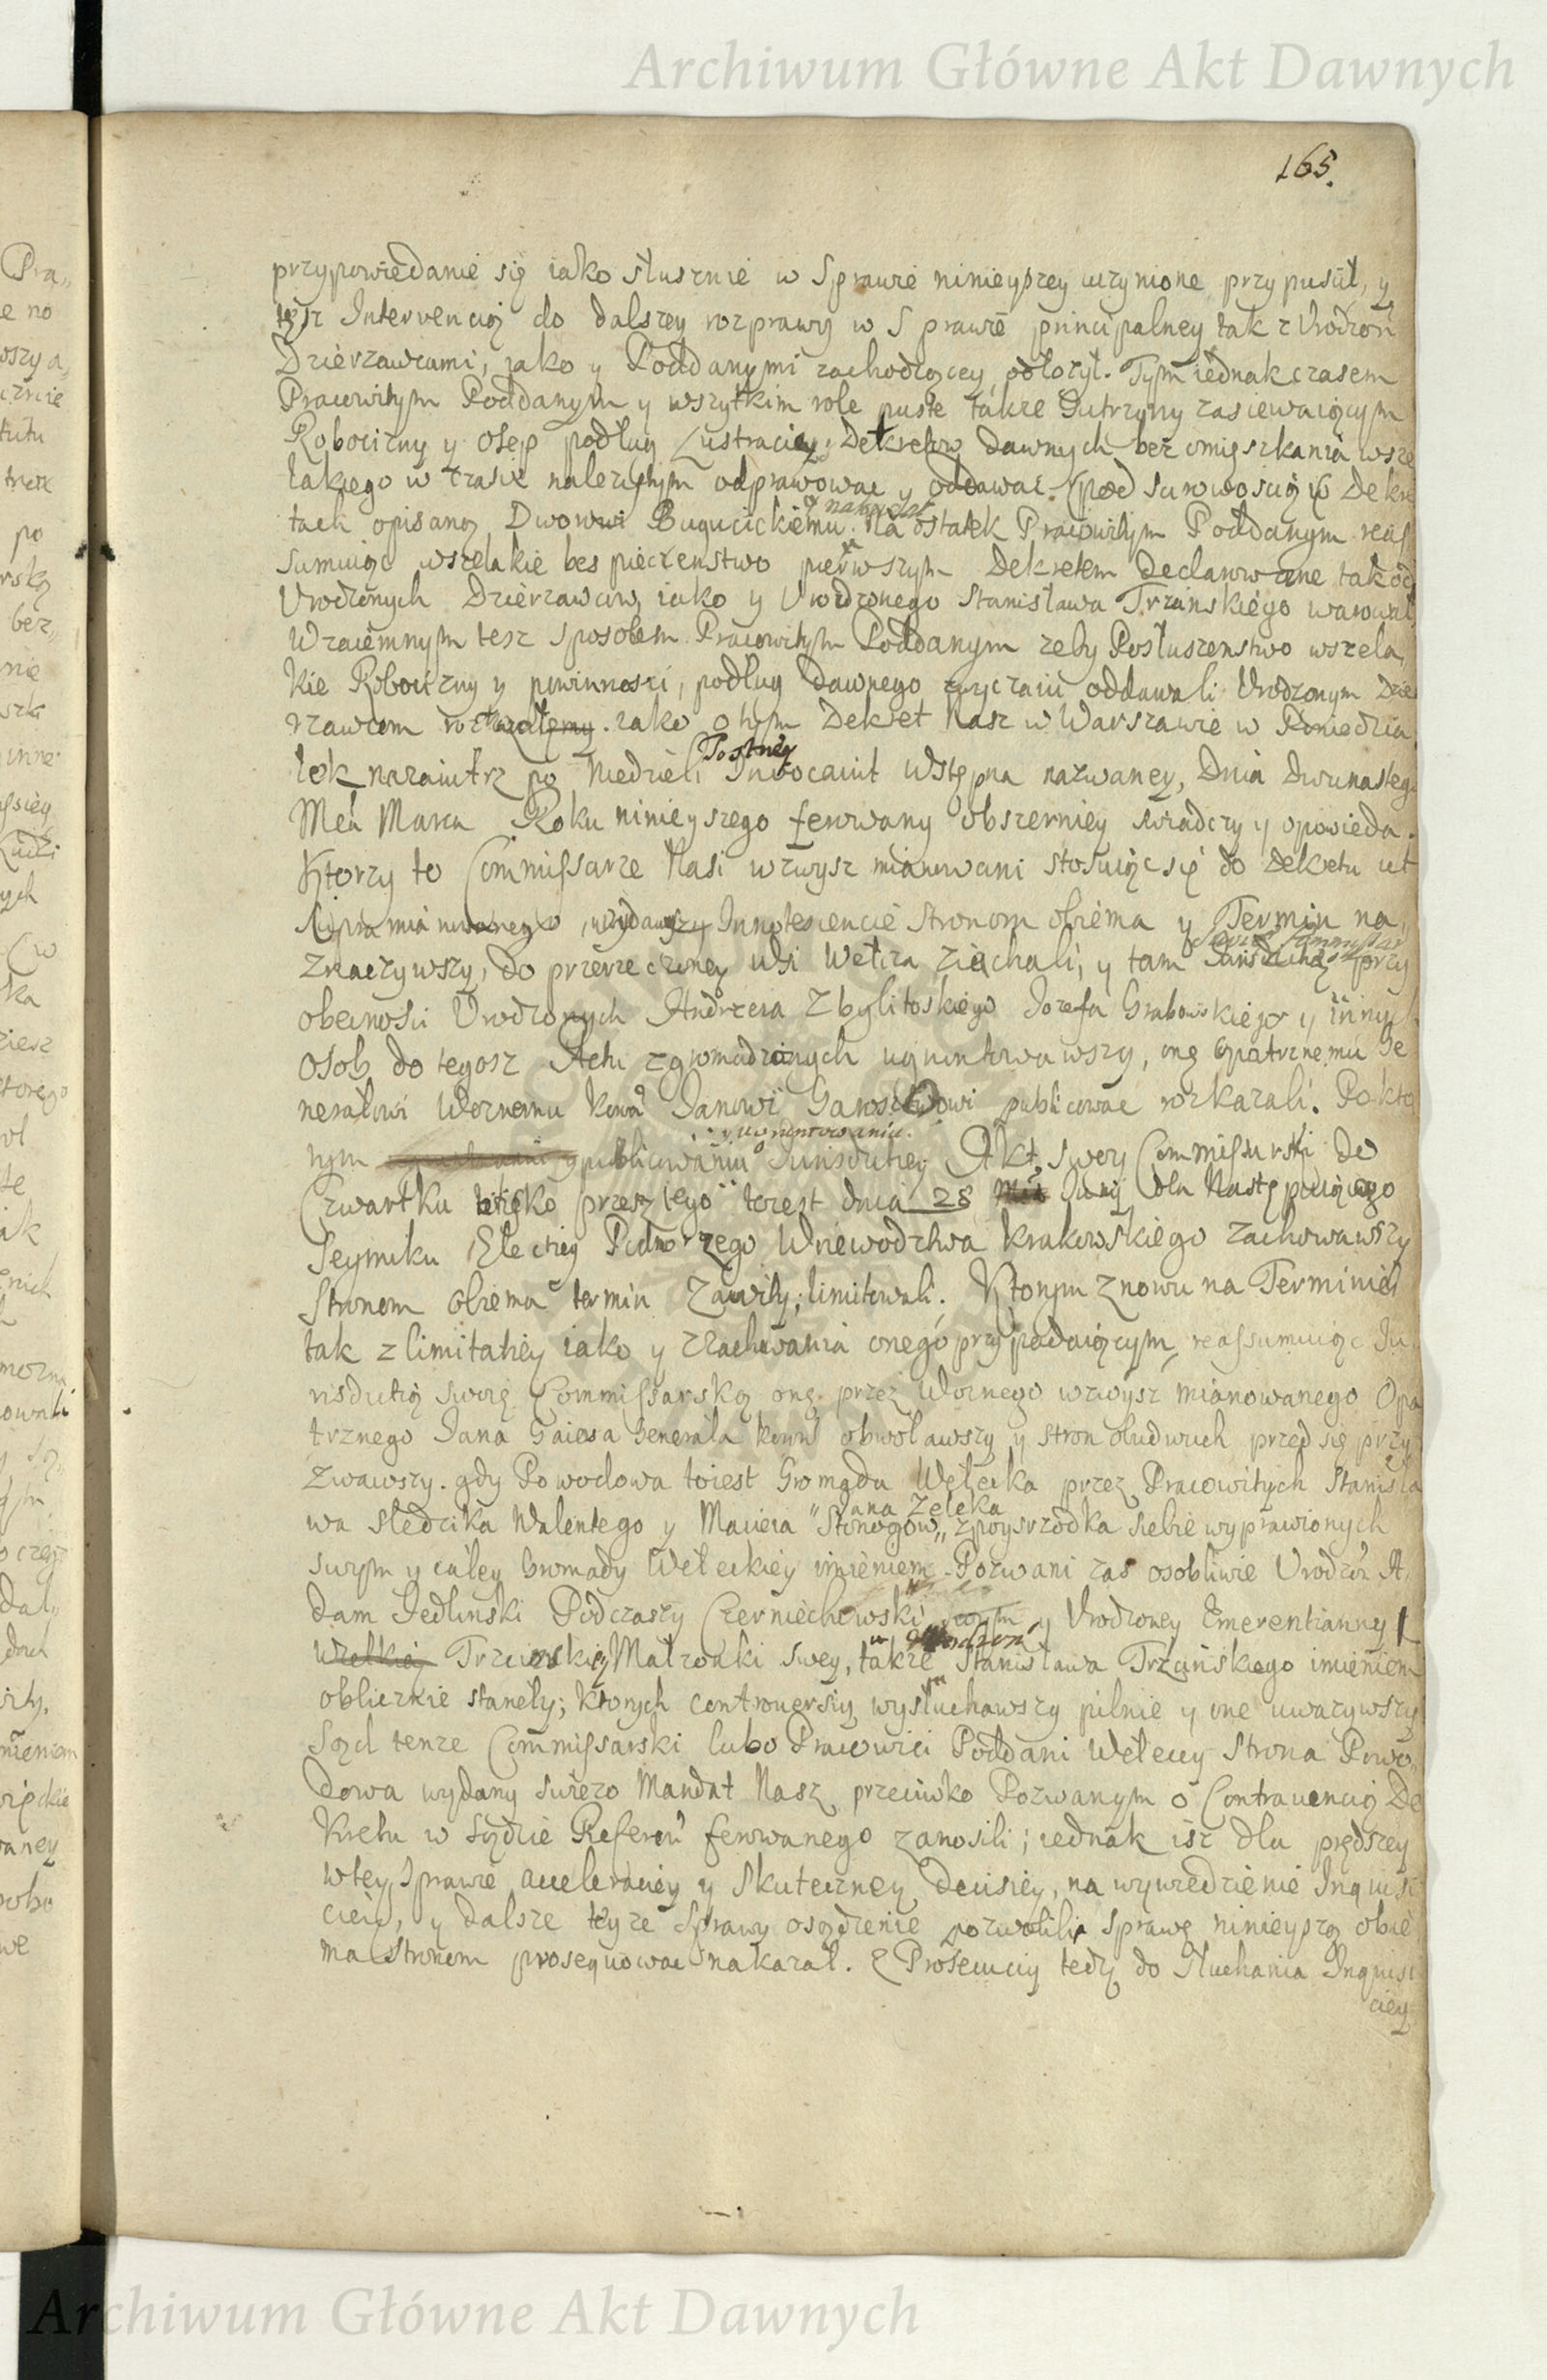 Archiwum Główne Akt Dawnych
165.
przypowiedanie się iako słusznie w Sprawie ninieyszey uczynione przypuścił, y
tęsz Interwencią do dalszey rozprawy w Sprawie principalney tak z Urodzon
Dzierzawcami, iako y Poddanymi zachodzącey, odłozył. Tym iednak czasem
Pracowitym Poddanym y wszytkim role puste także Gutrzyny zasiewaiącym
Robocizny y Osep podług Lustraciey, Dekretow dawnych bez omięszkania wsze
lakiego w czasie nalezytym odprawować y oddawać (pod surowością w Dekre
tach opisaną Dworowi Bugucickiemu nakazał
Na ostatek Pracowitym Poddanym reas
sumuiąc wszelakie bespieczenstwo pierwszym Dekretem declarowane tak od
Urodzonych Dzierzawcow, iako y Urodzonego Stanisława Trzinskiego warował
Wzaiemnym tesz sposobem Pracowitym Poddanym zeby Posłuszenstwo wszela
kie Robocizny y powinnosci, podług dawnego zwyczaiu oddawali Urodzonym Dzie
rzawcom . iako o tym Dekret Nasz w Warszawie w Poniedzia
łek nazaiutrz po Niedzieli Postney Invocavit Wstępna nazwaney, Dnia Dwunasteg
Mca Marca Roku ninieyszego ferowany obszerniey swiadczy y opowieda.
Ktorzy to Commissarze Nasi wzwysz mianowani stosuiąc się do Dekretu ut
supra mianowanego, wydawszy Innotescencie Stronom obiema y Termin na,
znaczywszy, do przerzeczoney Wsi Wełcza ziechali, y tam Swoią Commissar
Jurisdictią przy
obecnosci Urodzonych Andrzeia Zbylitoskiego Iozefa Grabowskiego y innych
Osob do tegosz Actu zgromadzonych ugruntowawszy, onę Opatrznemu Ge
nerałowi Woznemu Koron Ianowi publicować rozkazali. Po kto
rym publicowaniu y ugruntowaniu Jurisdictiey Akt swoy Commissarski do
Czwartku blisko przeszłego toiest dnia 28 Iunij dla Następuiącego
Seymiku Electiey Podkomorzego Woiewodztwa Krakowskiego zachowawszy
Stronom obiema termin Zawity, limitowali. Ktorym znowu na Terminie
tak z limitatiey iako y zachowania onego przypadaiącym, reassumuiąc Iu
risdictią swoię Commissarską onę przez Woznego wzwysz mianowanego Opa
trznego Iana Gaiesa Generała koron obwoławszy y stron obudwuch przed się przy
zwawszy. gdy Powodowa toiest Gromada Wełecka przez Pracowitych Stanisła
wa Sledzika Walentego y Macieia Iana Zeleka Stonogow, zpoysrzodka siebie wyprawionych
swym y całey Gromady Wełeckiey imieniem. Pozwani zas osobliwie Urodzon A
dam Iedlinski Podczaszy Czerniechowski swym y Urodzoney Emerentianny
Wielkiey Trzcinskiey Małzonki swey, także Urodzon Stanisława Trzcińskiego imieniem
obliczkie staneły; ktorych controversiy wysłuchawszy pilnie y one uwazywszy
Sąd tenze Commissarski lubo Pracowici Poddani Wełeccy Strona Powo
dowa wydany swiezo Mandat Nasz przeciwko Pozwanym o Contravencią De
kretu w Sądzie Referen ferowanego zanosili; iednak isz dla prędszey
wtey Sprawie acceleraciey y skuteczney Decisiey, na wywiedzienie Inquisi
ciey, y dalsze teyze Sprawy osądzenie pozwolili Sprawę ninieyszą obie
ma Stronom prosequować nakazał. Z Prosecuciy tedy do Słuchania Inquisi
ciey
Archiwum Główne Akt Dawnych